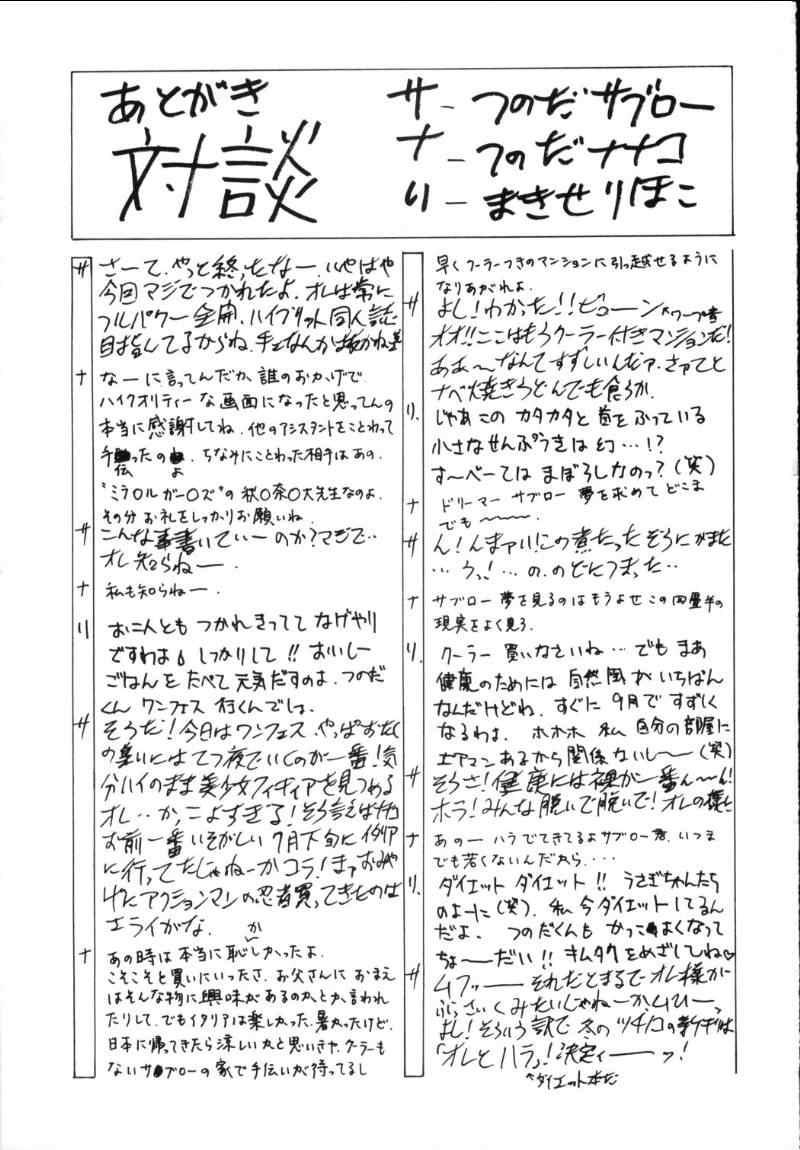 あとがき
対談
サ－つのだサブロー
ナ－つのだナナコ
り－まきせりほこ
サ さーて、やっと終ったなー、いやはや
今回マジでつかれたよ、オレは常に
フルパワー全開、ハイブリット同人誌
目指してるからね、手エなんかは抜かねェ
ナ なーに言ってんだか、誰のおかげで
ハイクオリティーな画面になったと思ってんの
本当に感謝してね、他のアシスタントをことわって
手伝ったのよ、ちなみにことわった相手はあの、
“ミラ○ル ガー○ズ”の秋○奈○大先生なのよ、
その分お礼をしっかりお願いね、
サ こんな事書いていーのか？マジで‥
オレ知らねー、
ナ 私も知らねー、
り お二人とも つかれきってて なげやり
ですわよ しっかりして！！ おいしー
ごはんを たべて 元気だすのよ、つのだ
くん ワンフェス 行くんでしょ、
サ そうだ！今日はワンフェス、やっぱおたく
の集いにはてつ夜でいくのが一番！気
分ハイのまま美少女フィギュアを見つめる
オレ‥かっこよすぎる！そう言えばナナコ
お前一番いそがしい7月下旬にイタリア
に行ってたじゃねーかコラ！まァおみや
げにアクションマンの忍者買ってきたのは
エライがな、
ナ あの時は本当に恥かしかったよ、
こそこそと買いにいったさ、お父さんに おまえ
はそんな物に興味があるのかとか、言われ
たりして、でもイタリアは楽しかった、暑かったけど、
日本に帰ってきたら涼しいかと思いきや、クーラーも
ないサブローの家で手伝いが待ってるし
早くクーラーつきのマンションに引っ越せるように
なりあがれよ、
サ よし！わかった！！ビューン←ワープ音
オオ！！ここはもうクーラー付きマンションだ！
ああ～なんてすずしいんだァ、さァてと
ナベ焼きうどんでも食うか、
り、 じゃあこの カタカタと 首を ふっている
小さなせんぷうきは 幻…！？
す～べーては まぼろしなのっ？（笑）
ナ ドリーマー サブロー 夢を求めて どこま
でも～～～、
サ ん！んまァい！この煮たったぞうにがまた
…うっ！…の、のどにつまった‥
ナ サブロー 夢を見るのはもうよせ この四畳半の
現実をよく見ろ、
り、 クーラー 買いなさいね… でも まあ
健康のためには 自然風が いちばん
なんだけどね、すぐに 9月で すずしく
なるわよ、 ホホホ 私 自分の部屋に
エアマンあるから関係ないし～（笑）
サ そうさ！健康には裸が一番ん～ん！
ホラ！みんな脱いで脱いで！オレの様に
ナ あのー ハラでてきてるよサブロー君、いつま
でも若くないんだから、・・・
り、 ダイエット ダイエット！！ うさぎちゃんたち
のよーに（笑）、 私 今 ダイエットしてるん
だよ、 つのだくんも かっこよくなって
ちょーだい！！ キムタクをめざしてね♡
サ ムフッ——それだとまるでオレ様が
ぶさいくみたいじゃねーか、ムひーっ
よし！そういう訳で 冬の ツチノコの新刊は
「オレとハラ」！決定ィ——ッ！
↑ダイエット本だ